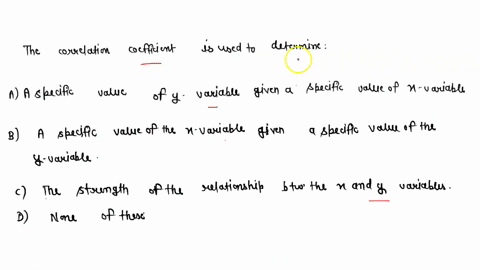 The correlation coefficient is used to determine:
A) A specific value of y- variable given a specific value of x-variable
B) A specific value of the x-variable given a specific value of the
y-variable.
C) The strength of the relationship btw the x and y variables.
D) None of these